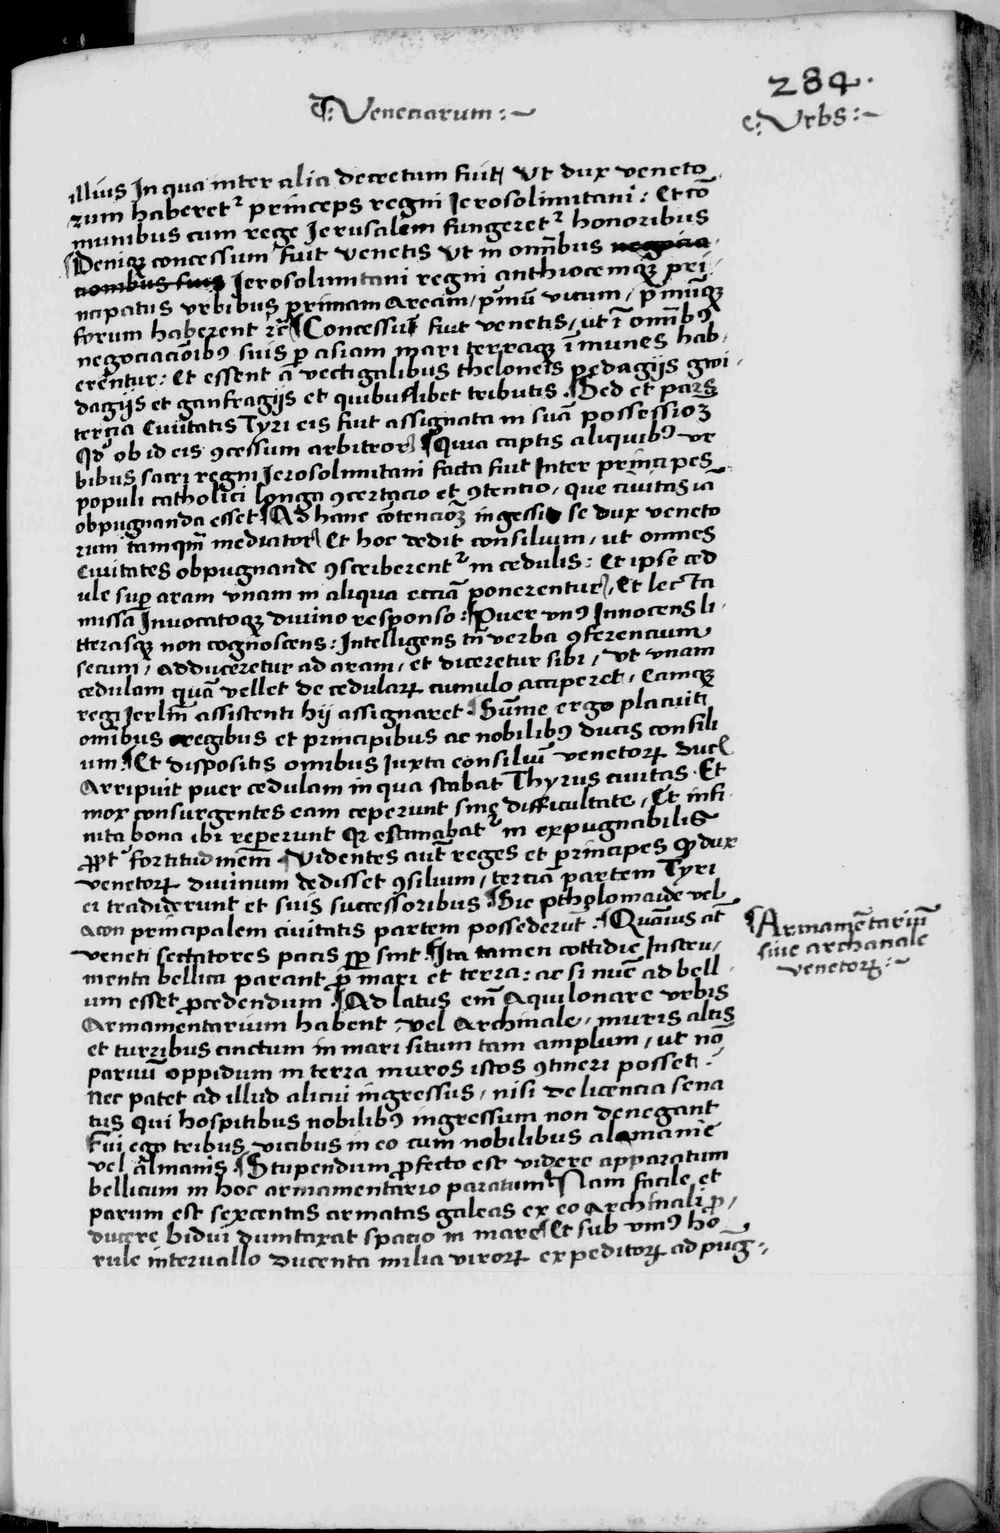 284.
¶ Veneciarum :~
¶ Vrbs :~
illius In qua inter alia decretum fuit Vt dux veneto
rum haberetᷣ princeps regni Jerosolimitani : Et cō
munibus cum rege Jerusalem fungeretᷣ honoribus
Deniqꝫ concessum fuit venetis Vt in om̄ibus negocia
cionibus suis Jerosolimitani regni anthiocemqꝫ pri
ncipatus vrbibus primam Aream / pͥmū vicum / pͥmūqꝫ
forum haberent ⁊c̄ Concessū fuit venetis / ut ī omībꝰ
negociaciōibꝰ suis ꝑ asiam mari terraqꝫ īmunes hab
erentur : Et essent ā vectigalibus theloneis pedagijs gwi
dagijs et ganfragijs et quibuslibet tributis . Sed et pars
tercia Ciuitatis Tyri eis fuit assignata in suā possessioꝫ
Qd ob id eis ꝯcessum arbitror Quia captis aliquibꝰ vr
bibus sacri regni Jerosolimitani facta fuit Inter principes
populi catholici longa ꝯcertacio et ꝯtentio / que ciuitas iā
obpugnanda esset Ad hanc cōtencioꝫ ingessit se dux veneto
rum tamqm̄ mediator Et hoc dedit consilium / ut omnes
Ciuitates obpugnande ꝯscriberentᷣ in cedulis : Et ipse ced
ule suꝑ aram vnam in aliqua ecciā ponerentur / Et lecta
missa Inuocatoqꝫ diuino responso : Puer vnꝰ Innocens li
tterasqꝫ non cognoscens : Intelligens tn̄ verba ꝯferencium
secum / adduceretur ad aram / et diceretur sibi / Vt vnam
cedulam quā vellet de cedulaꝝ cumulo acciperet / Eamqꝫ
regi Jerlm̄ assistenti hij assignaret . Sūme ergo placuit
omībus regibus et principibus ac nobilibꝰ ducis consili
um . Et dispositis omnibus Juxta consiliū venetoꝝ ducis
Arripuit puer cedulam in qua stabat Thyrus ciuitas . Et
mox consurgentes eam ceperunt sine difficultate / Et infi
nita bona ibi reperunt Qꝛ estimabatᷣ in expugnabilis
ꝓpt fortitudinem Videntes aut̄ reges et principes ꝙ dux
venetoꝝ diuinum dedisset ꝯsilium / terciā partem Tyri
ei tradiderunt et suis successoribus Sic ptholomaide vel
acon principalem ciuitatis partem possederūt . Quāuis at̄
veneti sectatores pacis ꝓp sint Ita tamen cottidie Instru
menta bellica parant ꝓ mari et terra : ac si nūc ad bell
um esset ꝓcedendum . Ad latus em̄ Aquilonare vrbis
Armamentarium habent , vel Archinale / muris altis
et turribus cinctum in mari situm tam amplum / ut nō
paruū oppidum in terra muros istos ꝯtineri posset .
Nec patet ad illud alicui ingressus / nisi de licencia sena
tus qui hospitibus nobilibꝰ ingressum non denegant
Fui ego tribus vicibus in eo cum nobilibus alamanie
vel almanis . Stupendum ꝓfecto est videre apparatum
bellicum in hoc armamentario paratum Nam facile et
parum est sexcentas armatas galeas ex eo Archinali ꝓ
ducere bidui dumtaxat spacio in mare Et sub vniꝰ ho
rule interuallo ducenta milia viroꝝ expeditoꝝ ad pūg
¶ Armamētariū
siue archanale
venetoꝝ :~